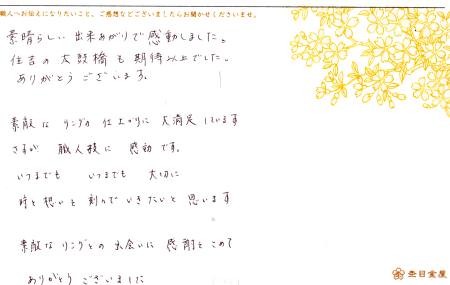 職人へお伝えになりたいこと、ご感想などございましたらお聞かせくださいませ。
素晴らしい出来あがりで感動しました。
住吉の太鼓橋も期待以上でした。
ありがとうございます。
素敵なリングの仕上がりに大満足しています
さすが職人技に感動です。
いつまでも いつまでも 大切に
時と想いと刻んでいきたいと思います
素敵なリングとの出会いに感謝をこめて
ありがとうございました
杢目金屋